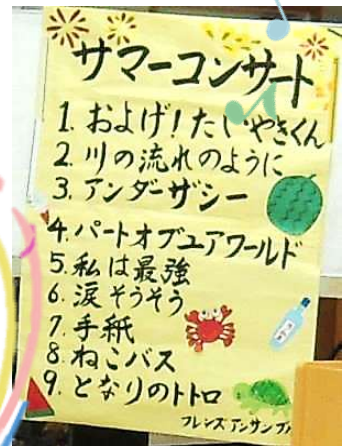 サマーコンサート
1. およげ!たいやきくん
2. 川の流れのように
3. アンダーザシー
4. パートオブユアワールド
5. 私は最強
6. 涙そうそう
7. 手紙
8. ねこバス
9. となりのトトロ
フレンズアンサンブル